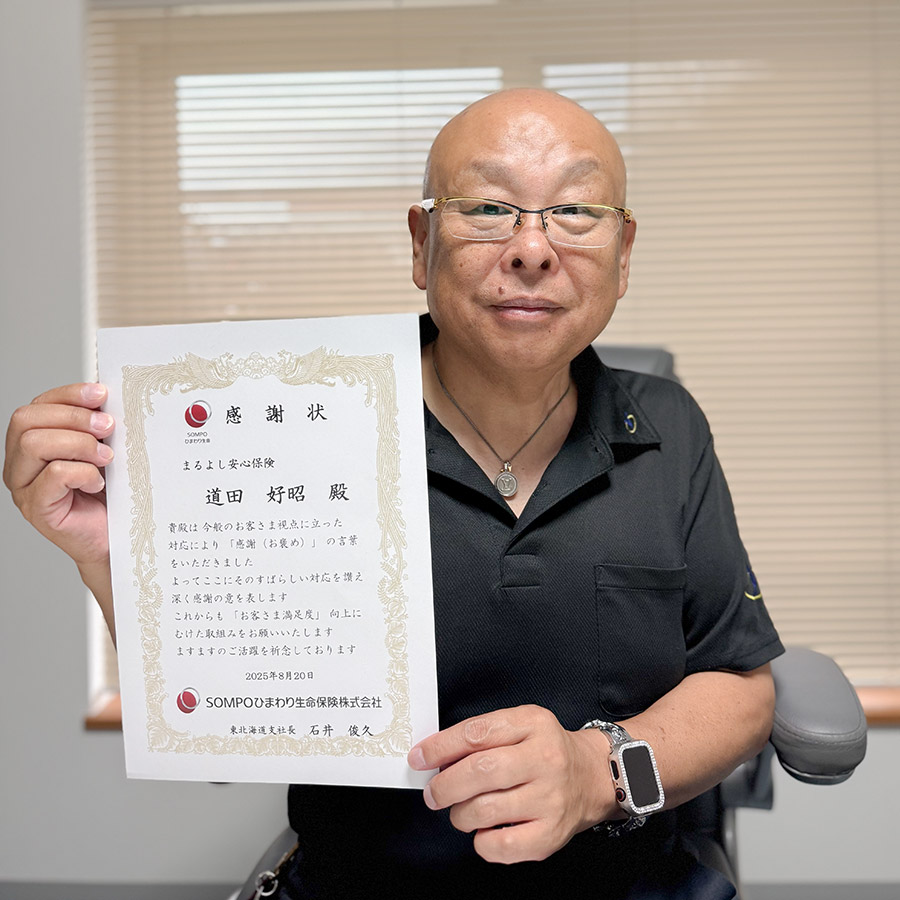 SOMPO
ひまわり生命
感謝状
まるよし安心保険
道田 好昭 殿
貴殿は今般のお客さま視点に立った
対応により「感謝(お褒め)」の言葉
をいただきました
よってここにそのすばらしい対応を讃え
深く感謝の意を表します
これからも「お客さま満足度」向上に
むけた取組みをお願いいたします
ますますのご活躍を祈念しております
2025年8月20日
SOMPOひまわり生命保険株式会社
東北海道支社長 石井 俊久